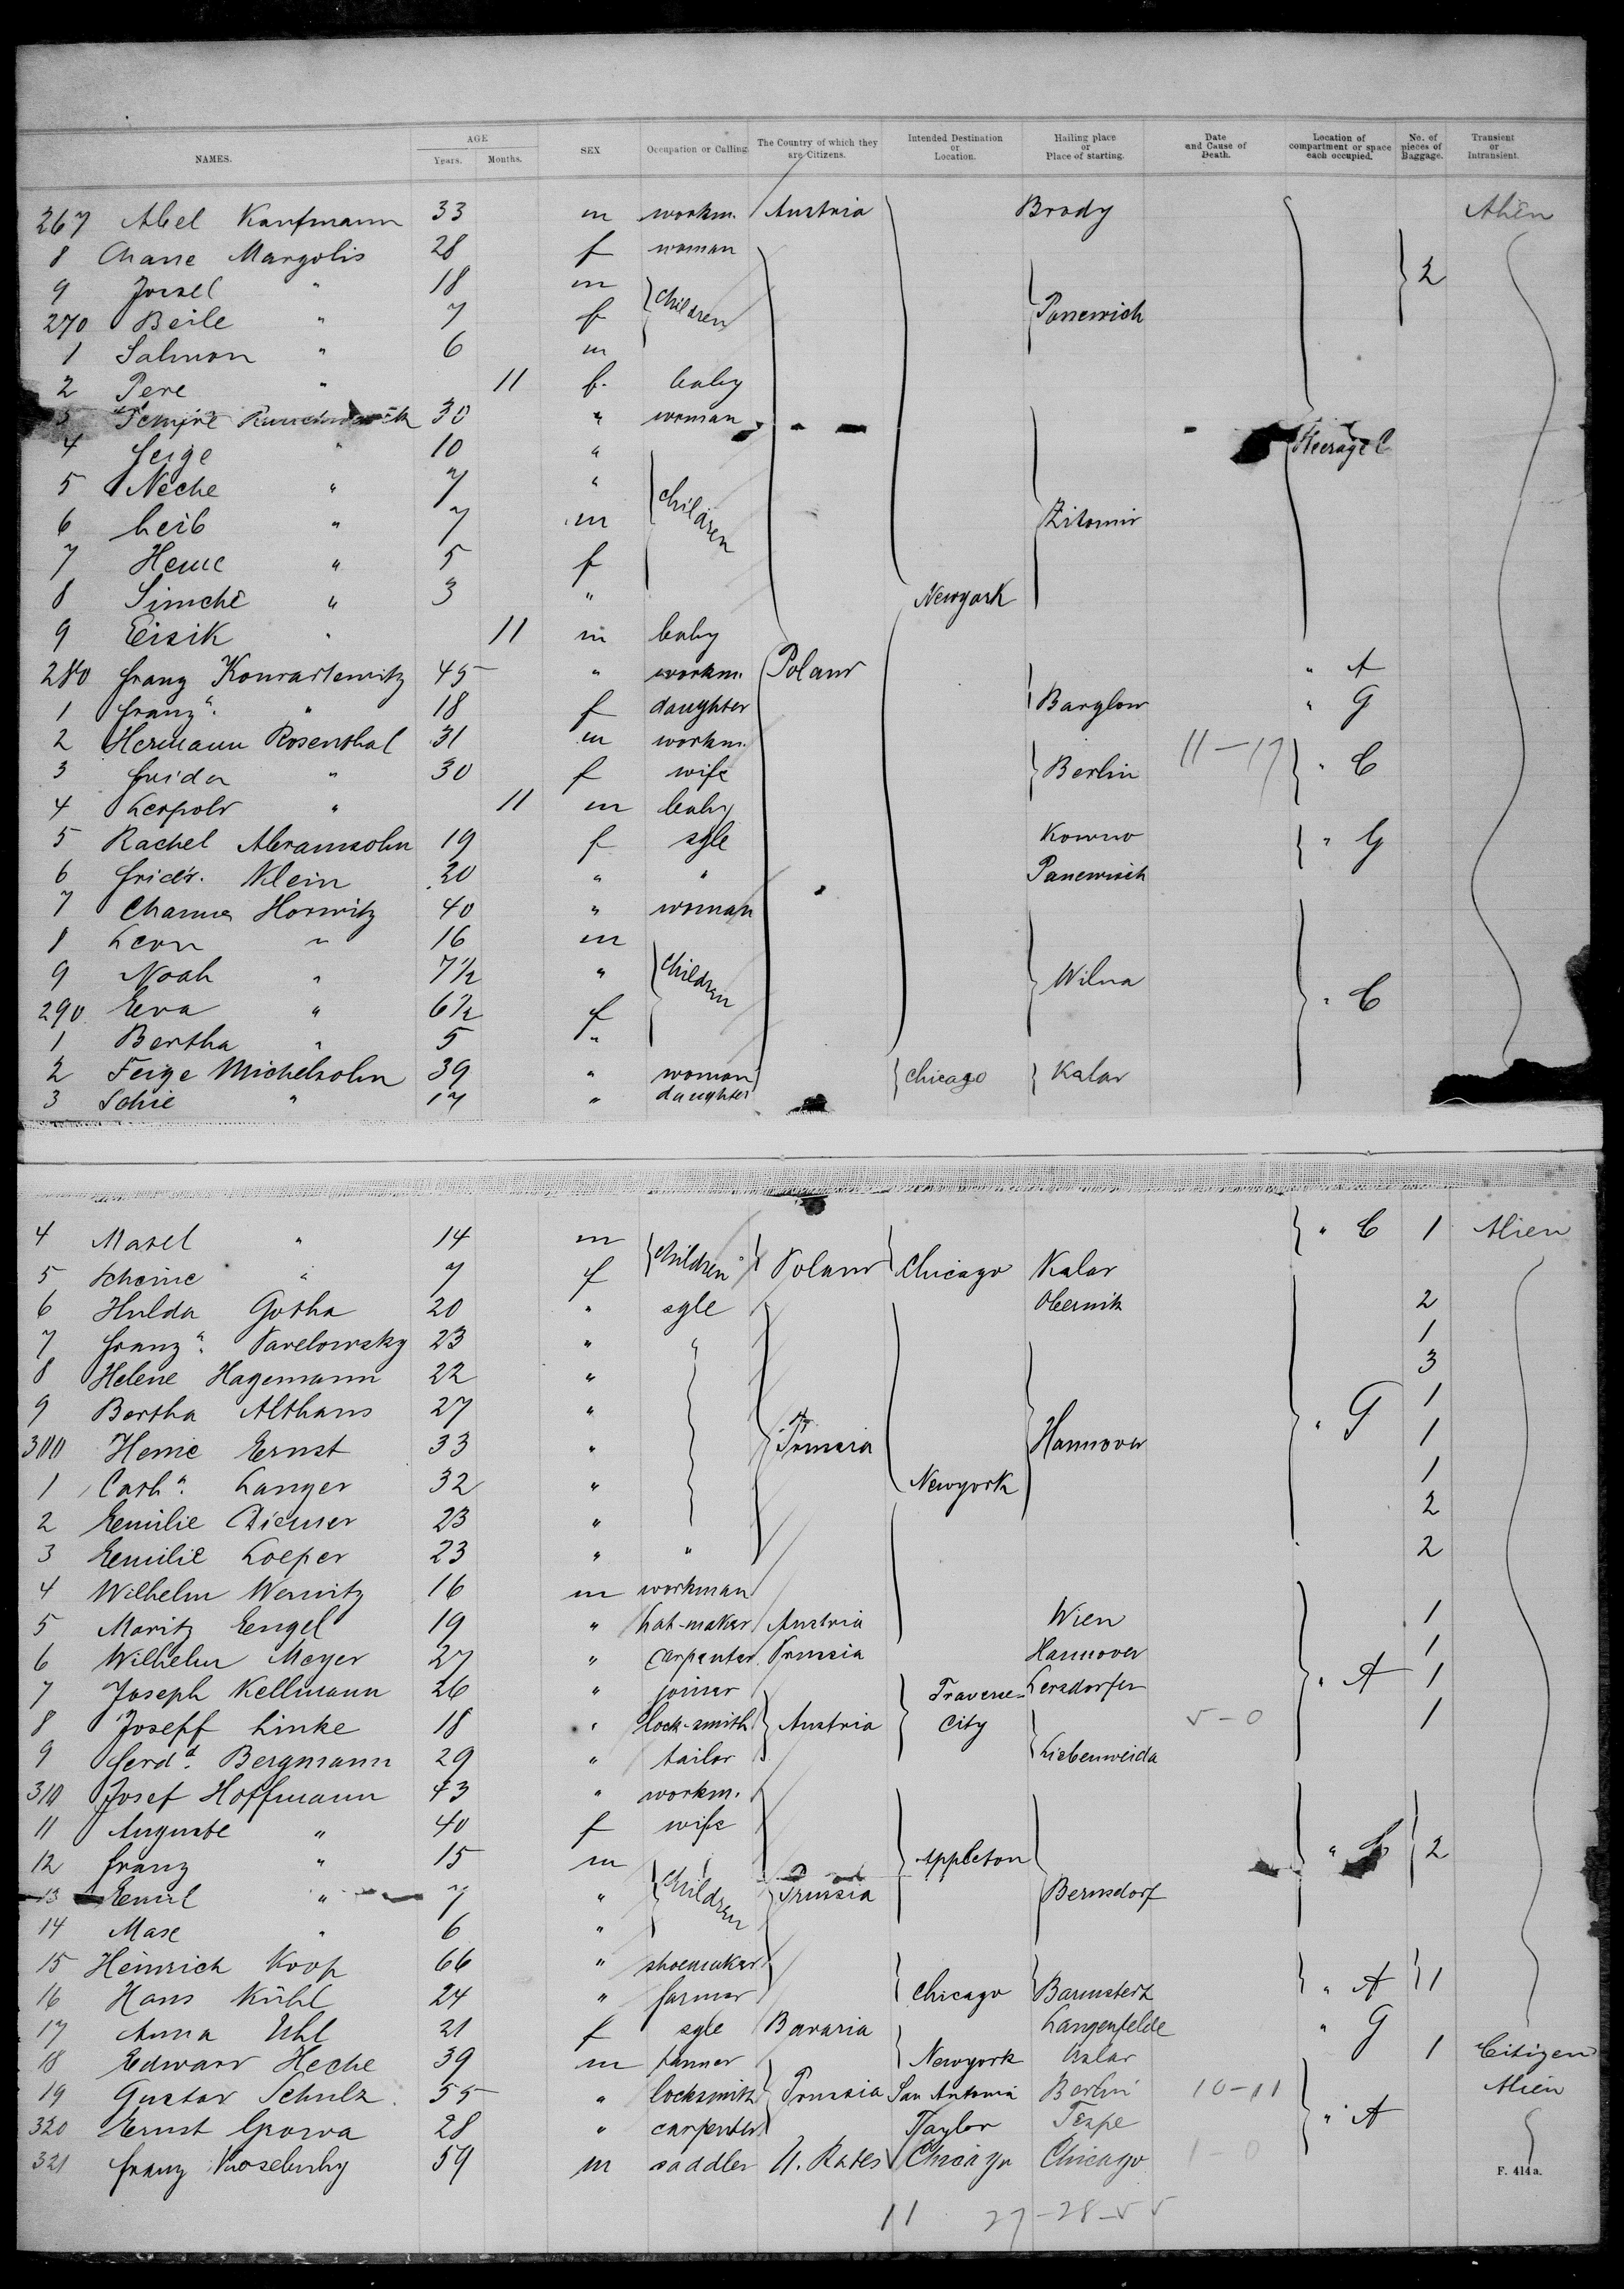 NAMES. AGE Years. Months. SEX Occupation or Calling. The Country of which they are Citizens. Intended Destination or Location. Hailing place or Place of starting. Date and Cause of Death. Location of compartment or space each occupied. No. of pieces of Baggage. Transient or Intransient.
267 Abel Kaufmann 33 m workm. Austria Brody Alien
8 Chane Margolis 28 f woman
9 Jossel " 18 m children 2
270 Beile " 7 f Ponewich
1 Salmon " 6 m
2 Pere " 11 f. baby
3 30 " woman
4 Feige " 10 " Steerage C
5 Neche " 7 " children
6 Leib " 7 m Zitomir
7 Hene " 5 f
8 Simche " 3 " Newyork
9 Eisik " 11 m baby
280 Franz 45 " workm. Poland " A
1 Franz a. " 18 f daughter Barglow " G
2 Hermann Rosenthal 31 m workm. 11-17
3 Frida " 30 f wife Berlin " C
4 Leopold " 11 m baby
5 Rachel Abramsohn 19 f sgle Kowno " G
6 Klein 20 " " Panewisch
7 Channe Horwitz 40 " woman
8 Leon " 16 m
9 Noah " 7½ " children Wilna
290 Eva " 6½ f " C
1 Bertha " 5 "
2 Feige Michelsohn 39 " woman Chicago Kalar
3 " 17 " daughter
4 " 14 m " C 1 Alien
5 Scheine " 7 f children Poland Chicago Kalar
6 Hulda Gotha 20 " sgle Obernik 2
7 Franz a. Pavelowsky 23 " " 1
8 Helene Hagemann 22 " 3
9 Bertha Althans 27 " " G 1
300 Henie Ernst 33 " Prussia Hannover 1
1 Cath a. Langer 32 " Newyork 1
2 Emilie Diemer 23 " 2
3 Emilie Loeper 23 " " 2
4 Wilhelm Wernitz 16 m workman
5 Moritz Engel 19 " hat-maker Austria Wien 1
6 Wilhelm Meyer 27 " carpenter Prussia Hannover 1
7 Joseph Kellmann 26 " joiner Traverse Lersdorfen " A 1
8 Joseff Linke 18 " lock-smith Austria City 5-0 1
9 Ferd d. Bergmann 29 " tailor Liebenweida
310 Josef Hoffmann 43 " workm.
11 Auguste " 40 f wife
12 Franz " 15 m Appleton " 2
13 Emil " 7 " children Prussia Bernsdorf
14 Max " 6 "
15 Heinrich Koop 66 " shoemaker
16 Hans Kühl 24 " farmer Chicago Barmstert " A 1
17 Anna Uhl 21 f sgle Bavaria Langenfelde " G
18 Edward Heche 39 m tanner Newyork 1 Citizen
19 Gustav Schulz 55 " locksmith Prussia San Antonia Berlin 10-11 Alien
320 Ernst 28 " carpenter Taylor " A
321 Franz 59 m saddler U. States Chicago Chicago 1-0
F. 414a.
11 27-28-55